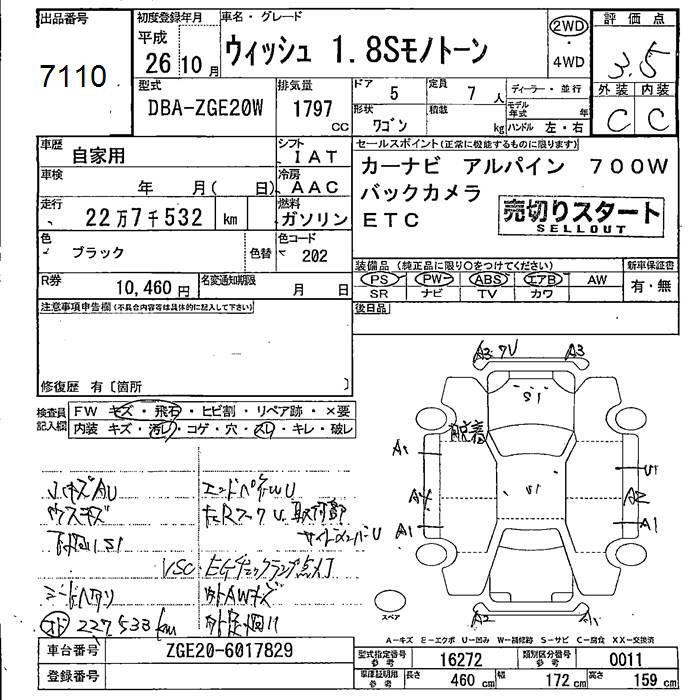 出品番号
7110
初度登録年月
平成
26年10月
車名・グレード
ウィッシュ 1.8Sモノトーン
2WD
・
4WD
評価点
3.5
外装 内装
C C
型式
DBA-ZGE20W
排気量
1797
CC
ドア 5
定員 7人
形状 ワゴン
積載 kg
ディーラー・並行
モデル年式 年
ハンドル 左・右
車歴 自家用
シフト IAT
車検 年 月( 日)
冷房 AAC
走行 22万7千532 km
燃料 ガソリン
色 ブラック 色替
色コード 202
R券 10,460円
名変通知期限 月 日
セールスポイント(正常に機能するものに限ります)
カーナビ アルパイン 700W
バックカメラ
ETC
売切りスタート
SELLOUT
装備品(純正品に限り○をつけてください)
PS PW ABS エアB AW
SR ナビ TV カワ
新車保証書
有・無
後日品
注意事項申告欄(不具合内容等は具体的に記入して下さい)
修復歴 有〔箇所 〕
検査員記入欄
FW キズ・飛石・ヒビ割・リペア跡・×要
内装 キズ・汚レ・コゲ・穴・スレ・キレ・破レ
小キズAU
ウスキズ
下回りS1
VSC・EGチェックランプ点灯
シートヘタリ
外AWキズ
227,533km
A3 7U A3
S1
脱着
A1 U1
S1
A4 A2
A1 A1
A2 A1
スペア
A-キズ E-エクボ U-凹み W-補修跡 S-サビ C-腐食 XX-交換済
車台番号 ZGE20-6017829
登録番号
型式指定番号 参考 16272
類別区分番号 参考 0011
車庫証明用 参考 長さ 460cm 幅 172cm 高さ 159cm